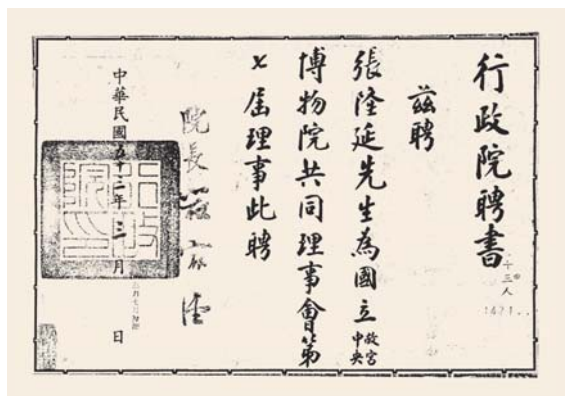 行政院聘書
十三人
茲聘
張隆延先生為國立故宮中央
博物院共同理事會第
七屆理事此聘
院長嚴家淦
中華民國五十三年三月 日
行政院印